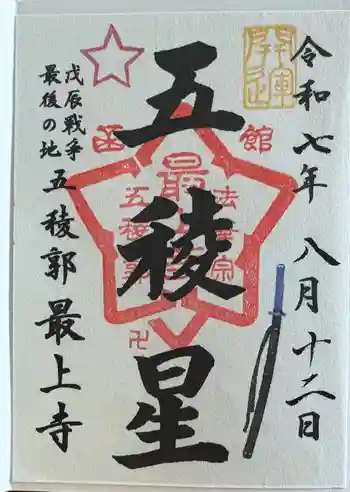 令和七年 八月十二日
開運
函館
五稜星
法華宗
最上寺
五稜郭
卍
戊辰戦争
最後の地
五稜郭 最上寺